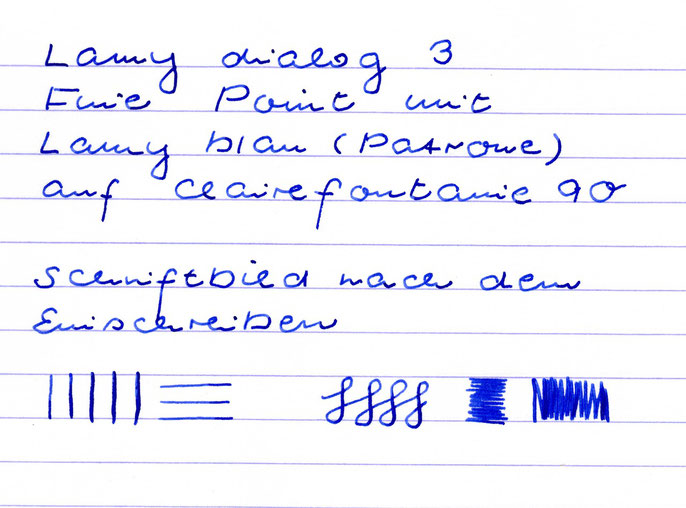 Lamy dialog 3
Fine Point mit
Lamy blau (Patrone)
auf Clairefontaine 90
Schriftbild nach dem
Einschreiben